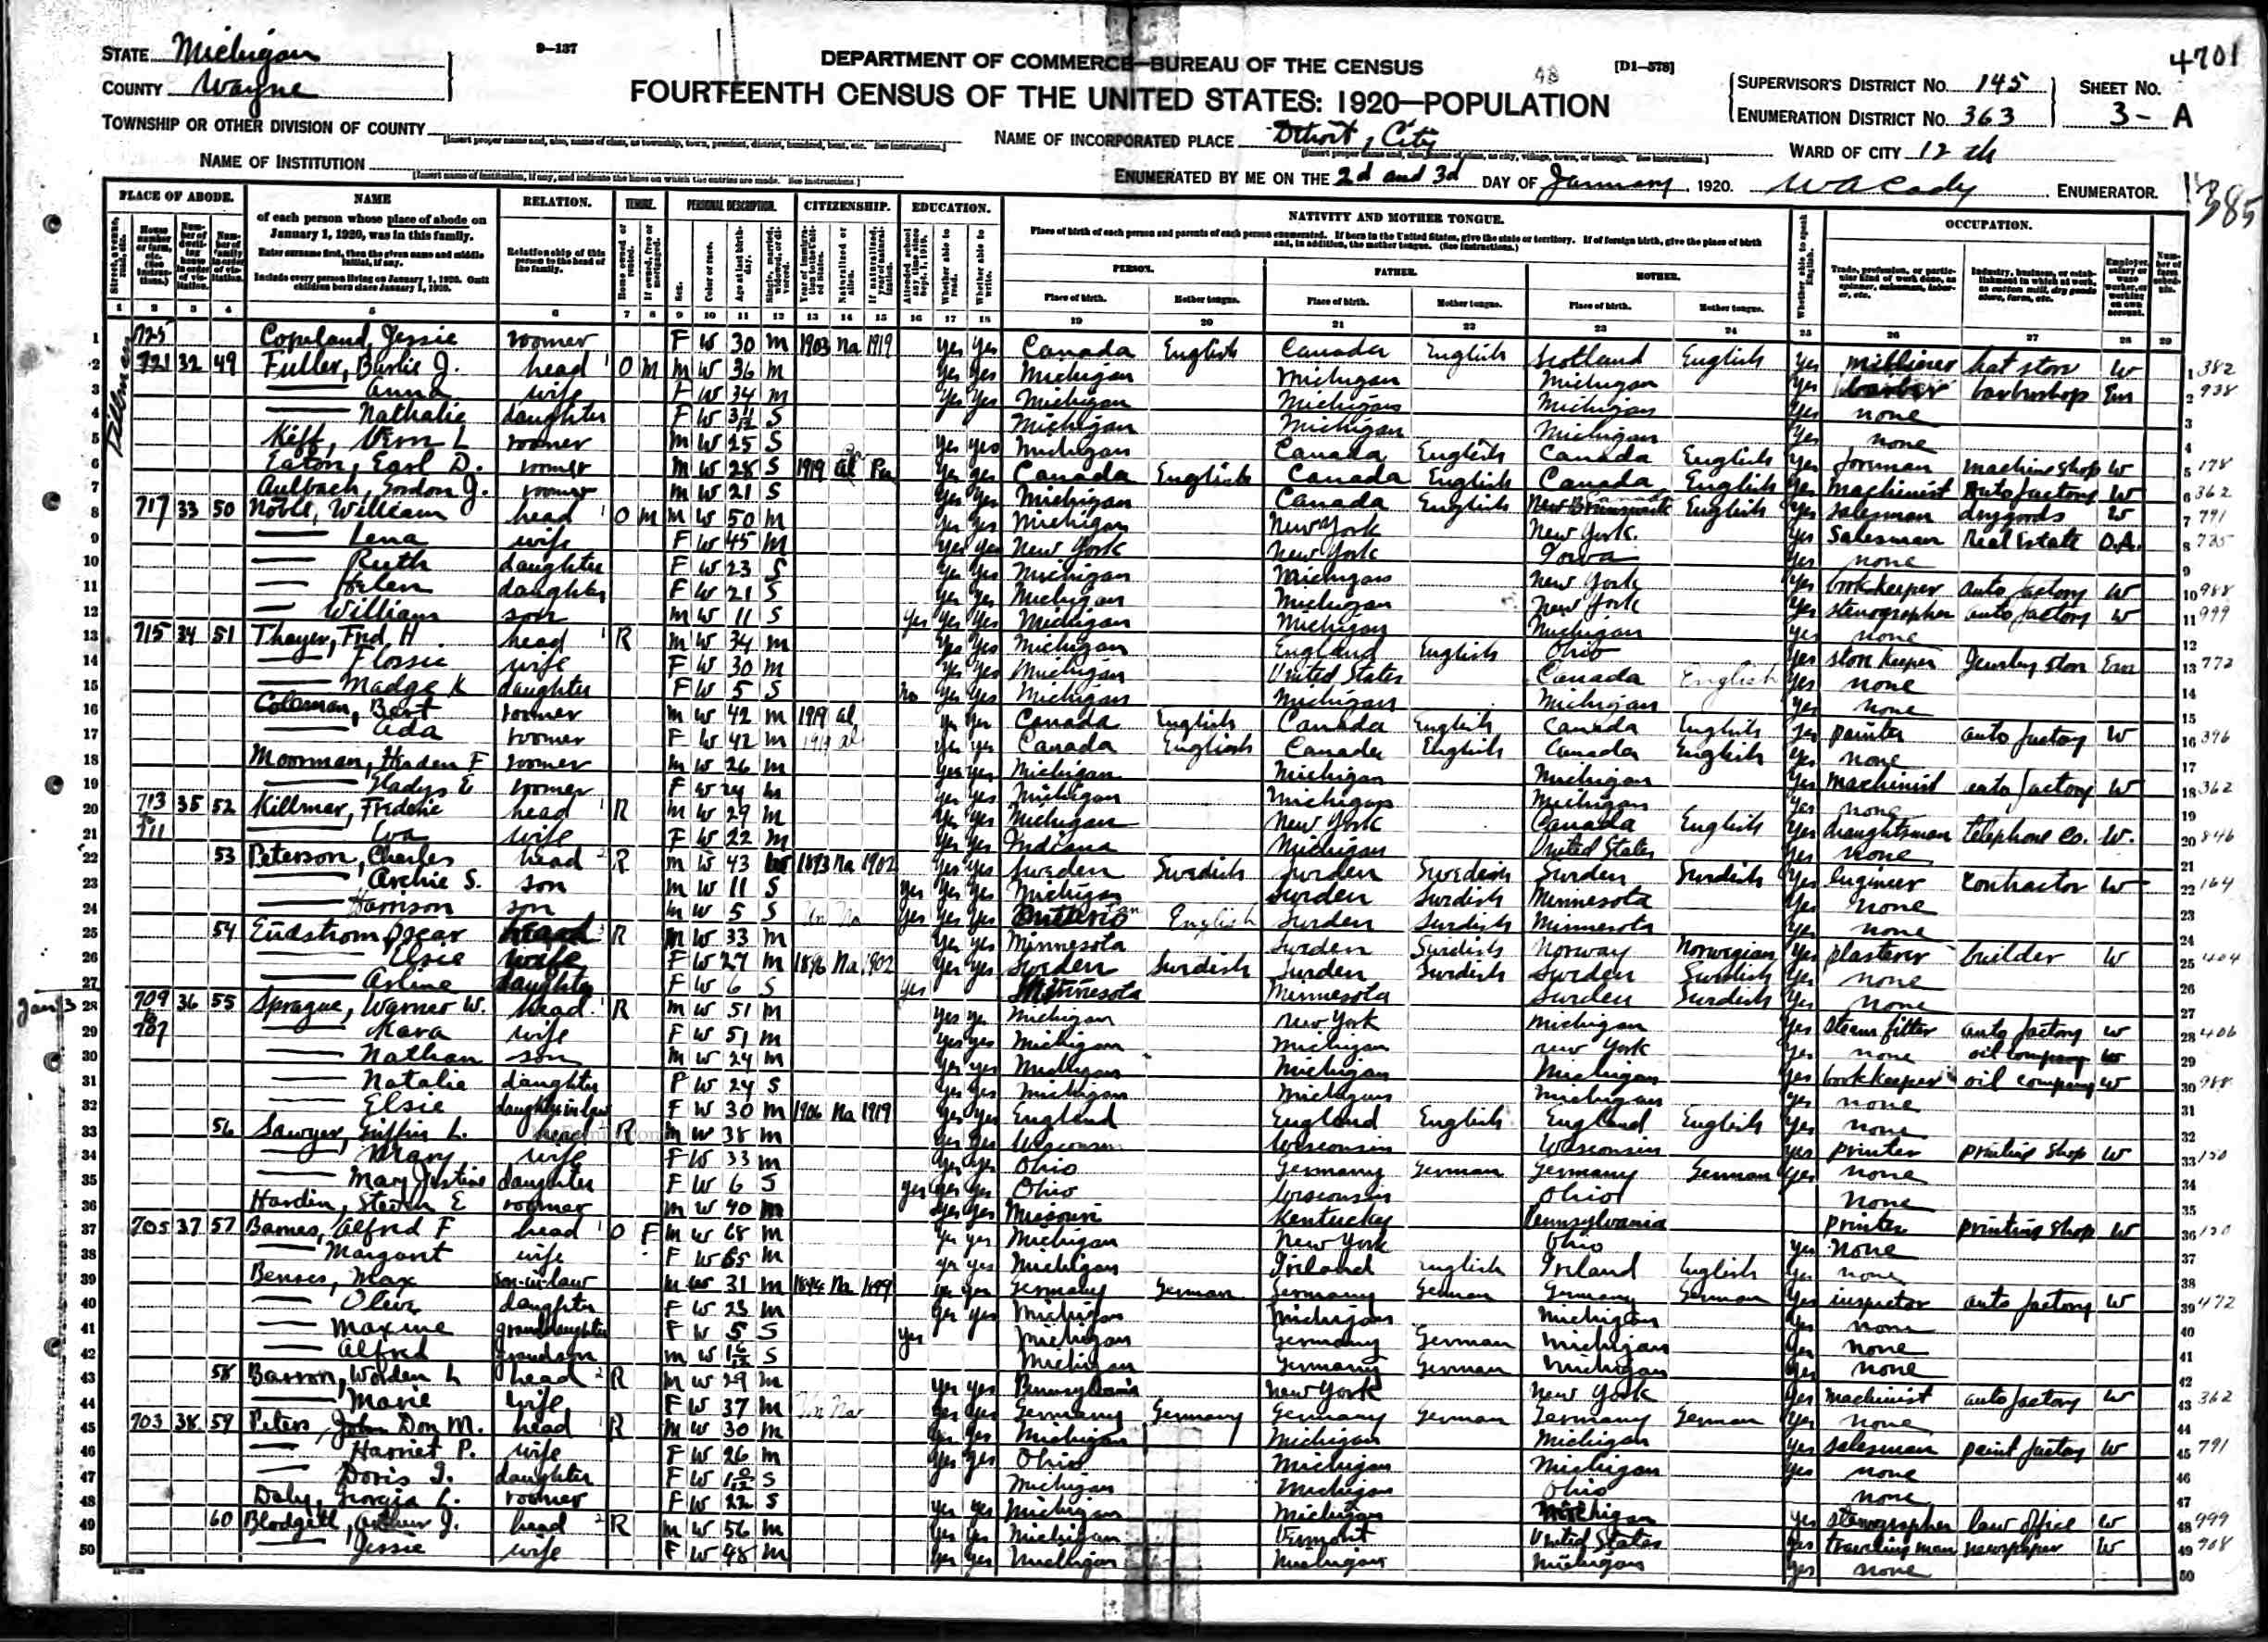 4701
STATE Michigan 9-137 DEPARTMENT OF COMMERCE-BUREAU OF THE CENSUS [D1-578]
COUNTY Wayne FOURTEENTH CENSUS OF THE UNITED STATES: 1920-POPULATION SUPERVISOR'S DISTRICT No. 145 SHEET No.
ENUMERATION DISTRICT No. 363 3- A
TOWNSHIP OR OTHER DIVISION OF COUNTY NAME OF INCORPORATED PLACE Detroit, City WARD OF CITY 12th
NAME OF INSTITUTION ENUMERATED BY ME ON THE 2d and 3d DAY OF January, 1920. W A Cady ENUMERATOR.
385
PLACE OF ABODE. NAME RELATION. TENURE. PERSONAL DESCRIPTION. CITIZENSHIP. EDUCATION. NATIVITY AND MOTHER TONGUE. OCCUPATION.
of each person whose place of abode on January 1, 1920, was in this family.
Enter surname first, then the given name and middle initial, if any.
Include every person living on January 1, 1920. Omit children born since January 1, 1920.
Relationship of this person to the head of the family.
Place of birth of each person and parents of each person enumerated. If born in the United States, give the state or territory. If of foreign birth, give the place of birth and, in addition, the mother tongue. (See instructions.)
PERSON. FATHER. MOTHER.
Place of birth. Mother tongue. Place of birth. Mother tongue. Place of birth. Mother tongue.
1 2 3 4 5 6 7 8 9 10 11 12 13 14 15 16 17 18 19 20 21 22 23 24 25 26 27 28 29
1 725 Copeland, Jessie roomer F W 30 m 1903 Na 1919 yes yes Canada English Canada English Scotland English yes milliner hat store W 382
2 721 32 49 Fuller, Burlie J. head O M M W 36 m yes yes Michigan Michigan Michigan yes barber barbershop Em 938
3 Anna wife F W 34 m yes yes Michigan Michigan Michigan yes none
4 Nathalie daughter F W 3 11/12 S Michigan Michigan Michigan yes none
5 Kiff, Vern L roomer m W 25 S yes yes Michigan Canada English Canada English yes foreman machine shop W 178
6 Eaton, Earl D. roomer m W 28 S 1919 al Pa yes yes Canada English Canada English Canada English yes machinist Auto factory W 362
7 Aulbach, Gordon J. roomer m W 21 S yes yes Michigan Canada English New Brunswick Canada English yes salesman drygoods W 791
8 717 33 50 Noble, William head O M M W 50 m yes yes Michigan New York New York. yes Salesman Real Estate O.A. 735
9 Lena wife F W 45 m yes yes New York New York Iowa yes none
10 Ruth daughter F W 23 S yes yes Michigan Michigan New York yes bookkeeper auto factory W 988
11 Helen daughter F W 21 S yes yes Michigan Michigan New York yes stenographer auto factory W 999
12 William son m W 11 S yes yes yes Michigan Michigan Michigan yes none
13 715 34 51 Thayer, Fred H head R m W 34 m yes yes Michigan England English Ohio yes store keeper Jewelry store Em 772
14 Flossie wife F W 30 m yes yes Michigan United States Canada English yes none
15 Madge K daughter F W 5 S no yes yes Michigan Michigan Michigan yes none
16 Coleman, Bert roomer m W 42 m 1919 al yes yes Canada English Canada English Canada English yes painter auto factory W 396
17 Ada roomer F W 42 m 1919 al yes yes Canada English Canada English Canada English yes none
18 Moorman, F roomer m W 26 m yes yes Michigan Michigan Michigan yes machinist auto factory W 362
19 Gladys E roomer F W 24 m yes yes Michigan Michigan Michigan yes none
20 713 to 35 52 Killmar, Frederic head R m W 29 m yes yes Michigan New York Canada English yes draughtsman telephone Co. W. 846
21 711 Eva wife F W 22 m yes yes Indiana Michigan United States yes none
22 53 Peterson, Charles head R m W 43 1893 Na 1902 yes yes Sweden Swedish Sweden Swedish Sweden Swedish yes engineer contractor W 164
23 Archie S. son m W 11 S yes yes yes Michigan Sweden Swedish Minnesota yes none
24 Harrison son m W 5 S Un Na yes yes yes Ontario Can English Sweden Swedish Minnesota yes none
25 54 Eudstrom, Oscar head R m W 33 m yes yes Minnesota Sweden Swedish Norway Norwegian yes plasterer builder W 404
26 Elsie wife F W 27 m 1896 Na 1902 yes yes Sweden Swedish Sweden Swedish Sweden Swedish yes none
27 Arline daughter F W 6 S yes Minnesota Minnesota Sweden Swedish yes none
Jan 3 28 709 to 36 55 Sprague, Warner W. head R m W 51 m yes yes Michigan New York Michigan yes steam fitter auto factory W 406
29 707 Kara wife F W 51 m yes yes Michigan Michigan New York yes none oil company W
30 Nathan son m W 24 m yes yes Michigan Michigan Michigan yes bookkeeper oil company W 988
31 Natalie daughter F W 24 S yes yes Michigan Michigan Michigan yes none
32 Elsie daughter in law F W 30 m 1906 Na 1919 yes yes England England English England English yes none
33 56 Sawyer, Griffin L. head R m W 38 m yes yes Wisconsin Wisconsin Wisconsin yes printer printing shop W 130
34 Mary wife F W 33 m yes yes Ohio Germany German Germany German yes none
35 Mary Justine daughter F W 6 S yes yes yes Ohio Wisconsin Ohio none
36 Hardin, Steven E roomer m W 40 m yes yes Missouri Kentucky Pennsylvania printer printing shop W 130
37 705 37 57 Barnes, Alfred F head O F m W 68 m yes yes Michigan New York Ohio yes none
38 Margaret wife F W 65 m yes yes Michigan Ireland English Ireland English yes none
39 Benses, Max son-in-law m W 31 m 1894 Na 1899 yes yes Germany German Germany German Germany German yes inspector auto factory W 472
40 Olive daughter F W 23 m yes yes Michigan Michigan Michigan yes none
41 Maxine granddaughter F W 5 S yes Michigan Germany German Michigan yes none
42 Alfred grandson m W 1 6/12 S Michigan Germany German Michigan yes none
43 58 Barron, Worden L head R m W 29 m yes yes Pennsylvania New York New York yes machinist auto factory W 362
44 Marie wife F W 37 m Un Na yes yes Germany Germany Germany German Germany German yes none
45 703 38 59 Peters, John Don M. head R m W 30 m yes yes Michigan Michigan Michigan yes salesman paint factory W 791
46 Harriet P. wife F W 26 m yes yes Ohio Michigan Michigan yes none
47 Doris J. daughter F W 1 0/12 S Michigan Michigan Ohio none
48 Daly, Georgia L. roomer F W 22 S yes yes Michigan Michigan Michigan yes stenographer law office W 999
49 60 Blodgett, Arthur J. head R m W 56 m yes yes Michigan Vermont United States yes traveling man newspaper W 908
50 Jessie wife F W 48 m yes yes Michigan Michigan Michigan yes none